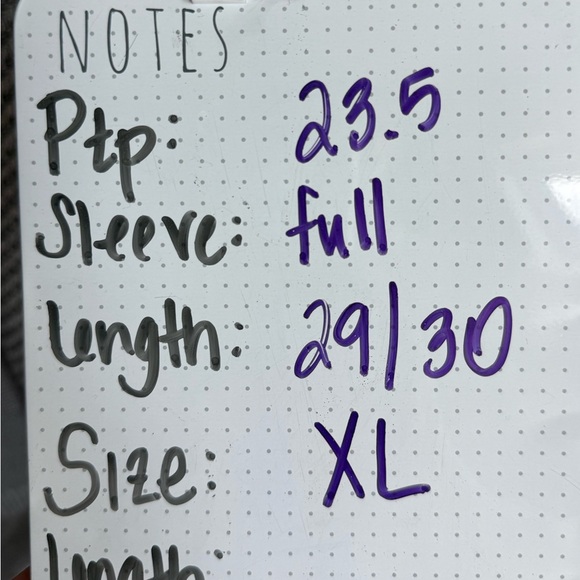 NOTES
Ptp: 23.5
Sleeve: full
Length: 29/30
Size: XL
Length: